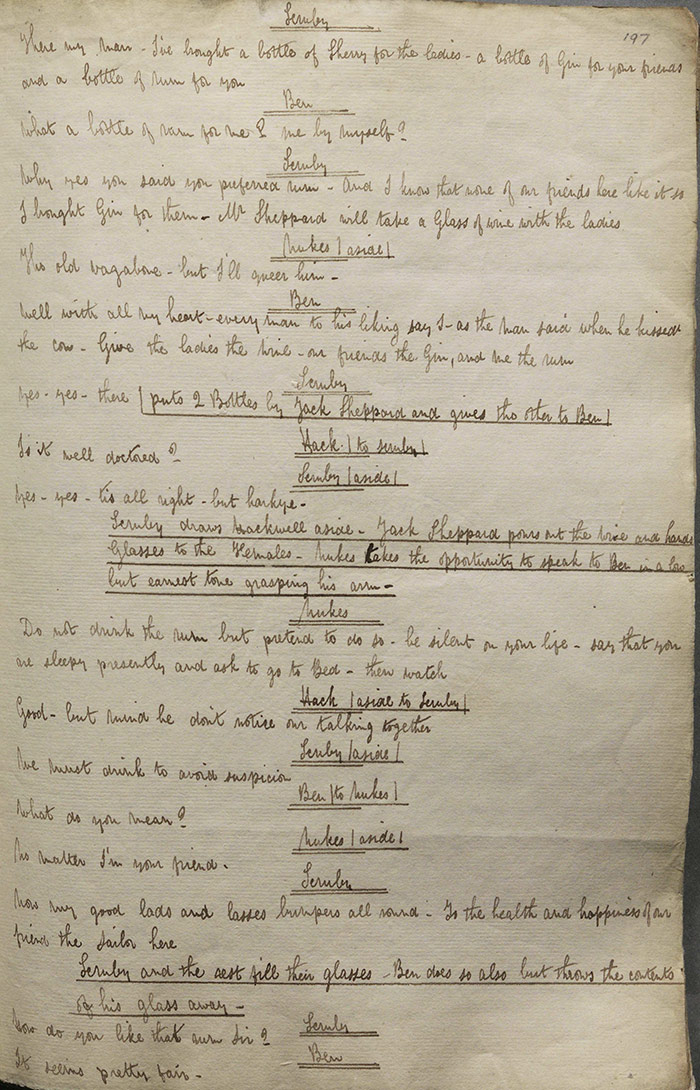 Scruby
197
There my man - I've bought a bottle of Sherry for the ladies - a bottle of Gin for your friends
and a bottle of rum for you
Ben
What a bottle of rum for me? me by myself?
Scruby
Why yes you said you preferred rum - And I know that none of our friends here like it so
I bought Gin for them - Mr Sheppard will take a Glass of wine with the ladies
Nukes |aside|
This old vagabone - but I'll queer him -
Ben
Well with all my heart - every man to his liking say I - as the man said when he kissed
the cow - Give the ladies the Wine - our friends the Gin, and me the rum
Scruby
yes - yes - there |puts 2 Bottles by Jack Sheppard and gives the other to Ben|
Hack |to Scruby|
Is it well doctored?
Scruby |aside|
Yes - yes - tis all right - but harkye -
Scruby draws Hackwell aside - Jack Sheppard pours out the wine and hands
Glasses to the Females - Nukes takes the opportunity to speak to Ben in a low
but earnest tone grasping his arm -
Nukes
Do not drink the rum but pretend to do so - be silent on your life - say that you
are sleepy presently and ask to go to Bed - then watch
Hack |aside to Scruby|
Good - but mind he don't notice our talking together
Scruby |aside|
We must drink to avoid suspicion
Ben |to Nukes|
What do you mean?
Nukes |aside|
No matter I'm your friend -
Scruby
Now my good lads and lasses bumpers all round - To the health and happiness of our
friend the Sailor here
Scruby and the rest fill their glasses - Ben does so also but throws the contents
of his glass away -
Scruby
How do you like that rum Sir?
Ben
It seems pretty fair -